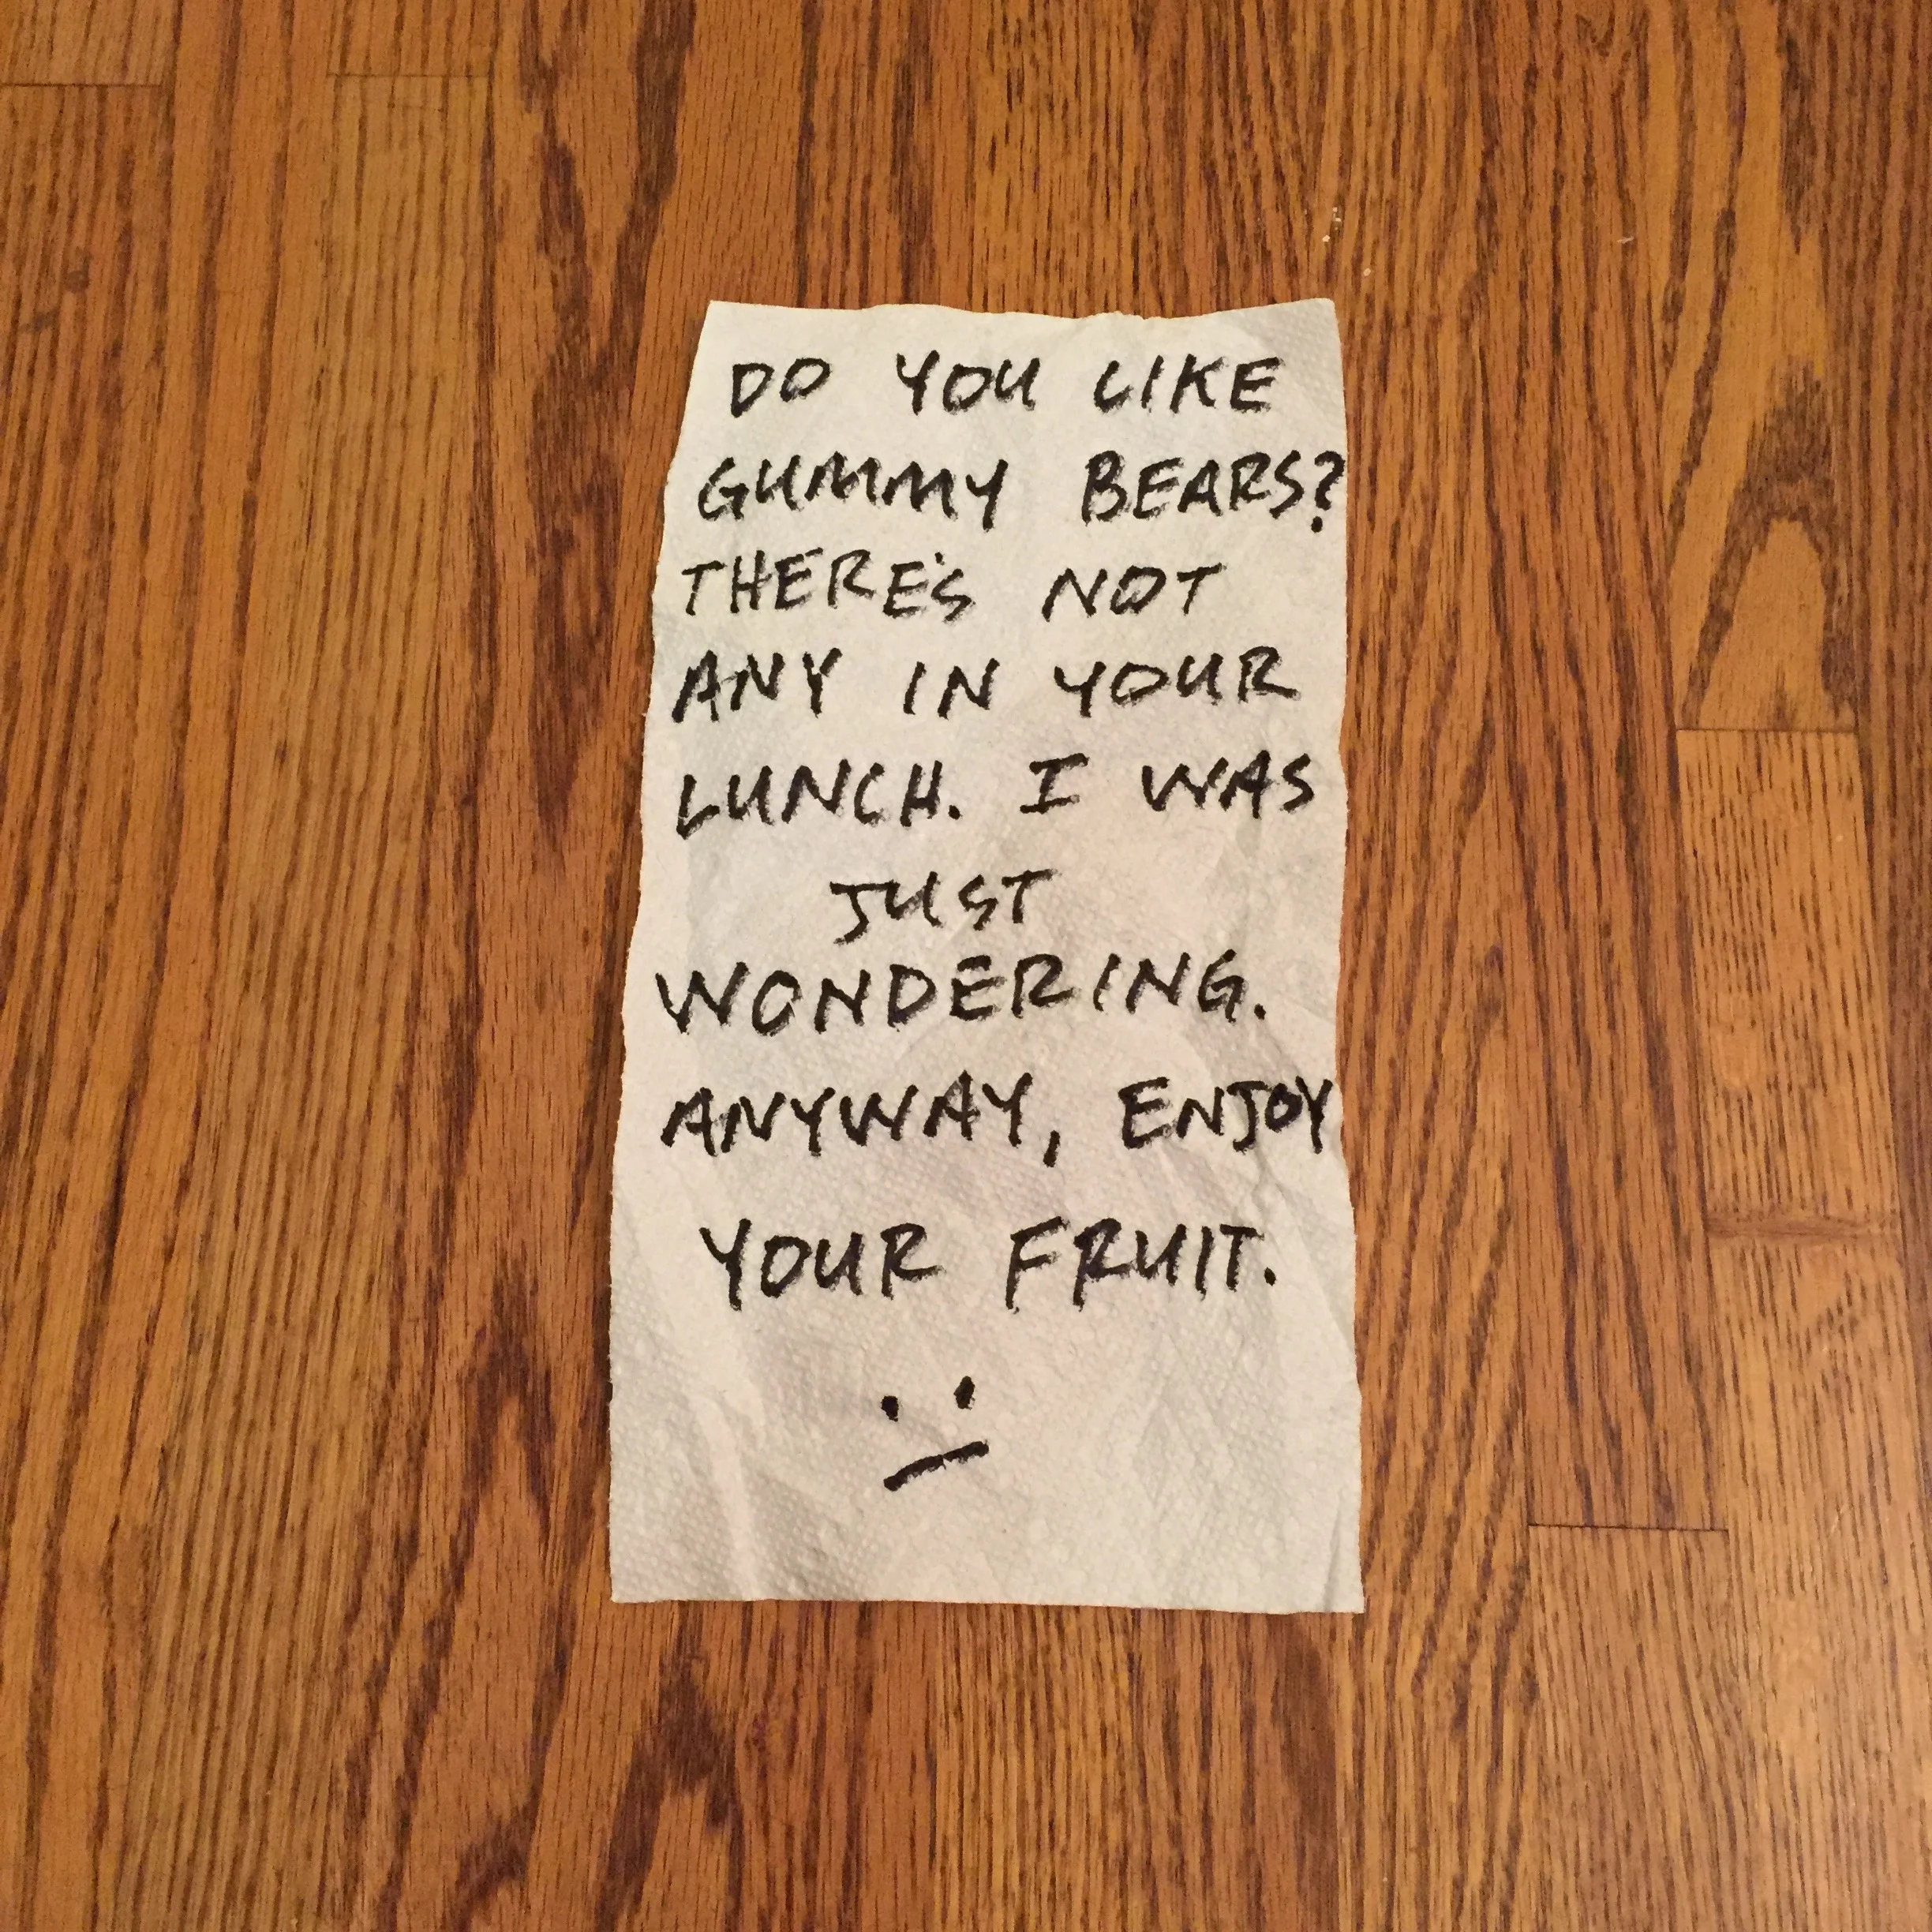 DO YOU LIKE
GUMMY BEARS?
THERE'S NOT
ANY IN YOUR
LUNCH. I WAS
JUST
WONDERING.
ANYWAY, ENJOY
YOUR FRUIT.